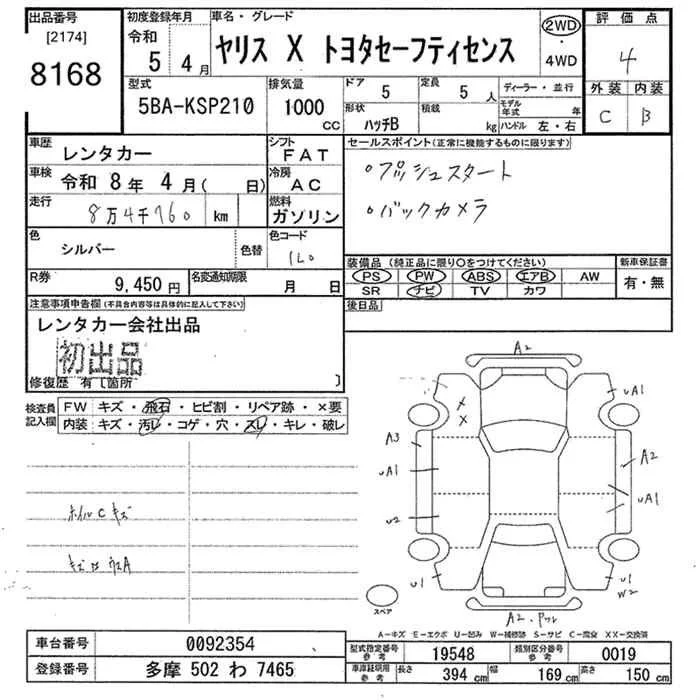 出品番号
[2174]
8168
初度登録年月
令和
5 4月
車名・グレード
ヤリス X トヨタセーフティセンス
2WD
・
4WD
評価点
4
外装 内装
C B
型式
5BA-KSP210
排気量
1000
CC
ドア
5
定員
5 人
形状
ハッチB
積載
kg
ディーラー・並行
モデル年式 年
ハンドル 左・右
車歴
レンタカー
シフト
FAT
車検
令和 8年 4月( 日)
冷房
AC
走行
8万4千760 km
燃料
ガソリン
色
シルバー
色替
色コード
1L0
R券
9,450円
名変通知期限
月 日
セールスポイント(正常に機能するものに限ります)
・プッシュスタート
・バックカメラ
装備品(純正品に限り○をつけてください)
PS PW ABS エアB AW
SR ナビ TV カワ
新車保証書
有・無
後日品
注意事項申告欄(不具合内容等は具体的に記入して下さい)
レンタカー会社出品
初出品
修復歴 有〔箇所 〕
検査員
記入欄
FW キズ・飛石・ヒビ割・リペア跡・×要
内装 キズ・汚レ・コゲ・穴・スレ・キレ・破レ
ホイルC キズ
A2
X
X
uA1
A3
uA1
u2
A2
uA1
u1
u1
W2
スペア
A-キズ E-エクボ U-凹み W-補修跡 S-サビ C-腐食 XX-交換済
車台番号
0092354
登録番号
多摩 502 わ 7465
型式指定番号
参考
19548
類別区分番号
参考
0019
車庫証明用
参考
長さ
394 cm
幅
169 cm
高さ
150 cm